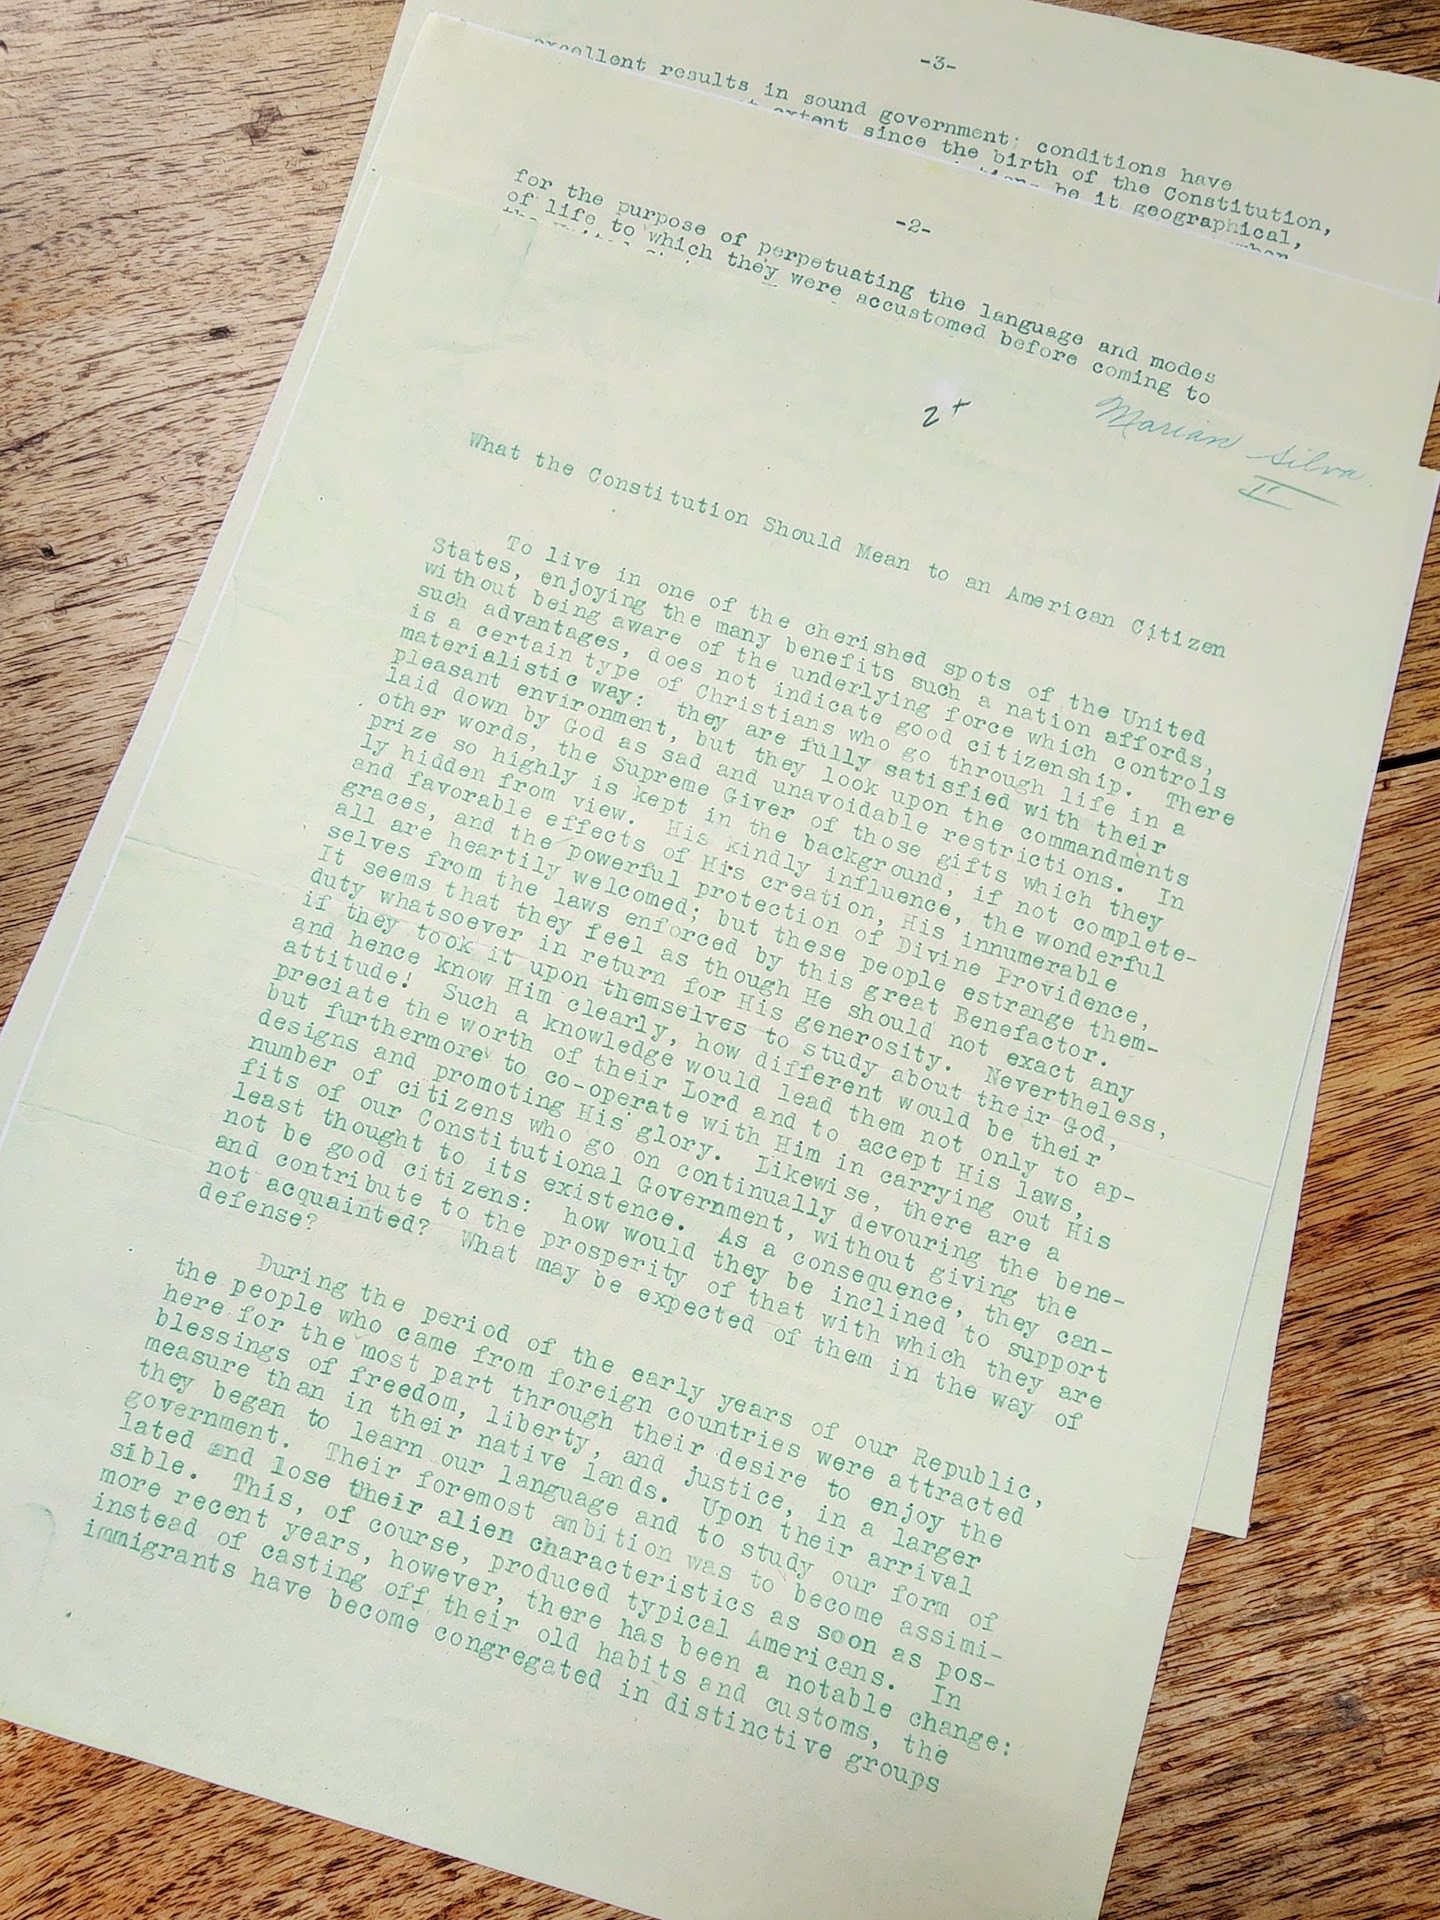 -3-
excellent results in sound government; conditions have
extent since the birth of the Constitution,
be it geographical,
-2-
for the purpose of perpetuating the language and modes
of life to which they were accustomed before coming to
2+
Marian Silva
II
What the Constitution Should Mean to an American Citizen
To live in one of the cherished spots of the United
States, enjoying the many benefits such a nation affords,
without being aware of the underlying force which controls
such advantages, does not indicate good citizenship. There
is a certain type of Christians who go through life in a
materialistic way: they are fully satisfied with their
pleasant environment, but they look upon the commandments
laid down by God as sad and unavoidable restrictions. In
other words, the Supreme Giver of those gifts which they
prize so highly is kept in the background, if not complete-
ly hidden from view. His kindly influence, the wonderful
and favorable effects of His creation, His innumerable
graces, and the powerful protection of Divine Providence,
all are heartily welcomed; but these people estrange them-
selves from the laws enforced by this great Benefactor.
It seems that they feel as though He should not exact any
duty whatsoever in return for His generosity. Nevertheless,
if they took it upon themselves to study about their God,
and hence know Him clearly, how different would be their
attitude! Such a knowledge would lead them not only to ap-
preciate the worth of their Lord and to accept His laws,
but furthermore to co-operate with Him in carrying out His
designs and promoting His glory. Likewise, there are a
number of citizens who go on continually devouring the bene-
fits of our Constitutional Government, without giving the
least thought to its existence. As a consequence, they can-
not be good citizens: how would they be inclined to support
and contribute to the prosperity of that with which they are
not acquainted? What may be expected of them in the way of
defense?
During the period of the early years of our Republic,
the people who came from foreign countries were attracted
here for the most part through their desire to enjoy the
blessings of freedom, liberty, and justice, in a larger
measure than in their native lands. Upon their arrival
they began to learn our language and to study our form of
government. Their foremost ambition was to become assimi-
lated and lose their alien characteristics as soon as pos-
sible. This, of course, produced typical Americans. In
more recent years, however, there has been a notable change:
instead of casting off their old habits and customs, the
immigrants have become congregated in distinctive groups